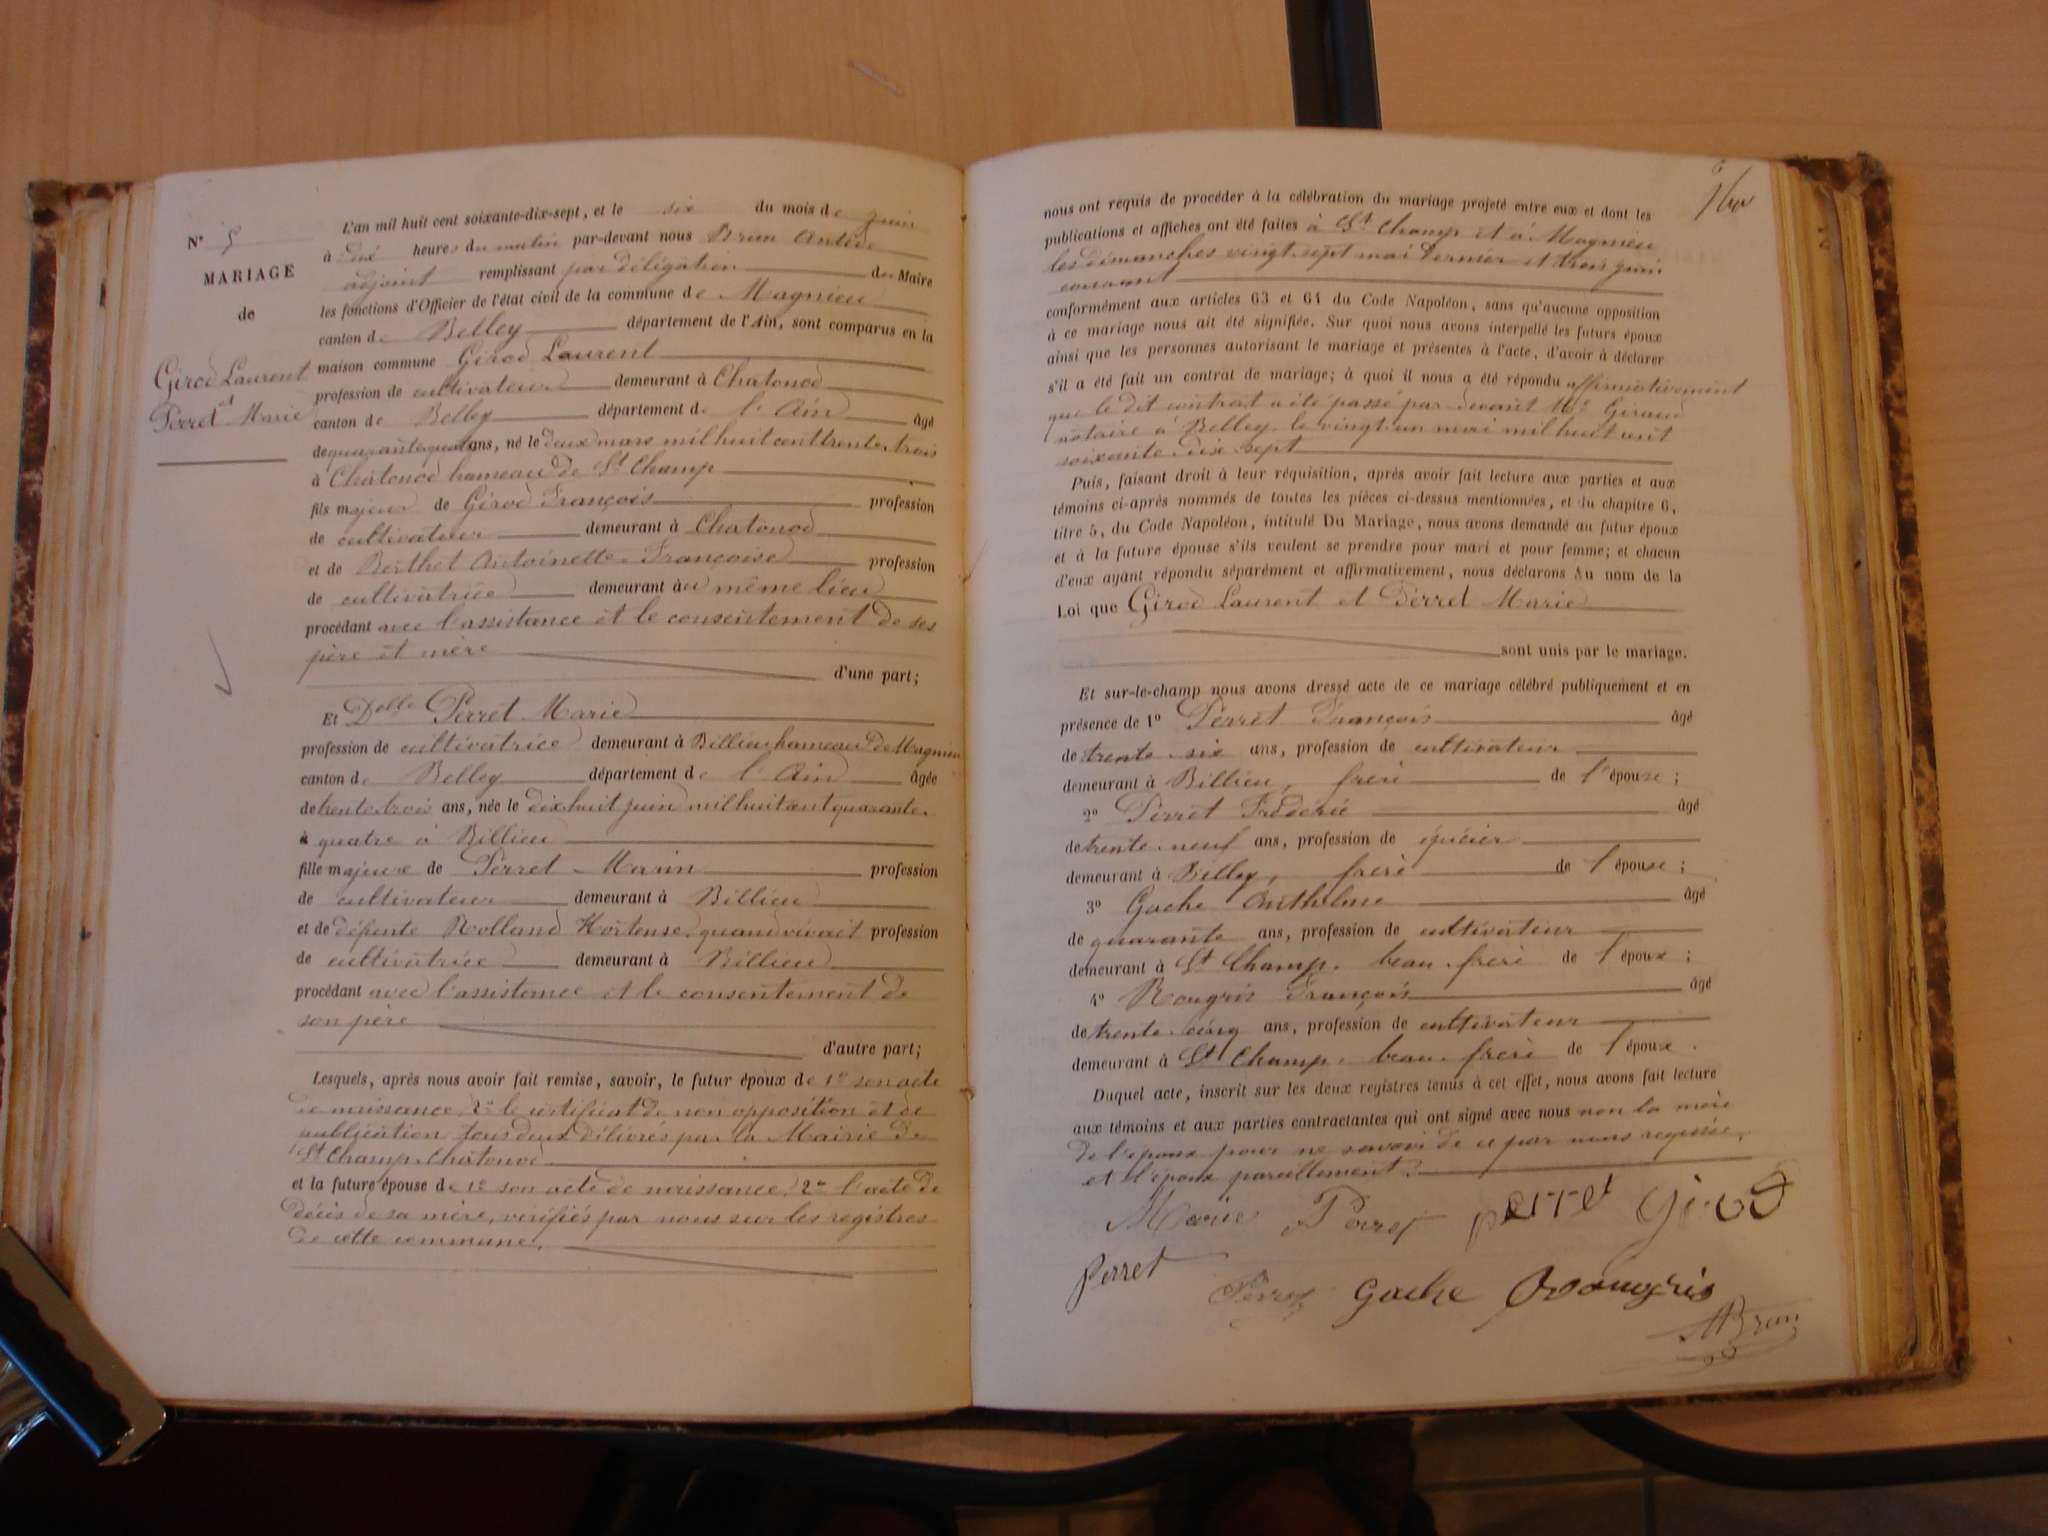 N° 5
MARIAGE
de
Girod Laurent
et
Perret Marie
L'an mil huit cent soixante-dix-sept, et le six du mois de juin
à dix heures du matin par-devant nous Brun Antède
adjoint remplissant par délégation du Maire
les fonctions d'Officier de l'état civil de la commune de Magnieu
canton de Belley département de l'Ain, sont comparus en la
maison commune Girod Laurent
profession de cultivateur demeurant à Chatonod
canton de Belley département de l'Ain âgé
de quarante quatre ans, né le deux mars mil huit cent trente-trois
à Chatonod hameau de St Champ
fils majeur de Girod François profession
de cultivateur demeurant à Chatonod
et de Berthet Antoinette-Françoise profession
de cultivatrice demeurant au même lieu
procédant avec l'assistance et le consentement de ses
père et mère
d'une part;
Et Delle Perret Marie
profession de cultivatrice demeurant à Billieu hameau de Magnieu
canton de Belley département de l'Ain âgée
de trente-trois ans, née le dix huit juin mil huit cent quarante-
quatre à Billieu
fille majeure de Perret Marin profession
de cultivateur demeurant à Billieu
et de défunte Rolland Hortense, quand vivait profession
de cultivatrice demeurant à Billieu
procédant avec l'assistance et le consentement de
son père
d'autre part;
Lesquels, après nous avoir fait remise, savoir, le futur époux de 1° son acte
de naissance, 2° le certificat de non opposition et de
publication tous deux délivrés par la Mairie de
St Champ-Chatonod
et la future épouse de 1° son acte de naissance, 2° l'acte de
décès de sa mère, vérifiés par nous sur les registres
de cette commune.
nous ont requis de procéder à la célébration du mariage projeté entre eux et dont les
publications et affiches ont été faites à St Champ et à Magnieu
les dimanches vingt-sept mai dernier et trois juin
courant
conformément aux articles 63 et 64 du Code Napoléon, sans qu'aucune opposition
à ce mariage nous ait été signifiée. Sur quoi nous avons interpellé les futurs époux
ainsi que les personnes autorisant le mariage et présentes à l'acte, d'avoir à déclarer
s'il a été fait un contrat de mariage; à quoi il nous a été répondu affirmativement
que le dit contrat a été passé par-devant Me Giraud
notaire à Belley le vingt-un mai mil huit cent
soixante dix-sept
Puis, faisant droit à leur réquisition, après avoir fait lecture aux parties et aux
témoins ci-après nommés de toutes les pièces ci-dessus mentionnées, et du chapitre 6,
titre 5, du Code Napoléon, intitulé Du Mariage, nous avons demandé au futur époux
et à la future épouse s'ils veulent se prendre pour mari et pour femme; et chacun
d'eux ayant répondu séparément et affirmativement, nous déclarons Au nom de la
Loi que Girod Laurent et Perret Marie
sont unis par le mariage.
Et sur-le-champ nous avons dressé acte de ce mariage célébré publiquement et en
présence de 1° Perret François âgé
de trente-six ans, profession de cultivateur
demeurant à Billieu, frère de l'épouse;
2° Perret Frédéric âgé
de trente-neuf ans, profession de épicier
demeurant à Belley, frère de l'épouse;
3° Gache Anthelme âgé
de quarante ans, profession de cultivateur
demeurant à St Champ, beau-frère de l'époux;
4° Rougris François âgé
de trente-cinq ans, profession de cultivateur
demeurant à St Champ, beau-frère de l'époux.
Duquel acte, inscrit sur les deux registres tenus à cet effet, nous avons fait lecture
aux témoins et aux parties contractantes qui ont signé avec nous non la mère
de l'époux pour ne savoir de ce par nous requise,
et l'époux pareillement.
Marie Perret perret girod
Perret
Perret Gache Rougris
ABrun